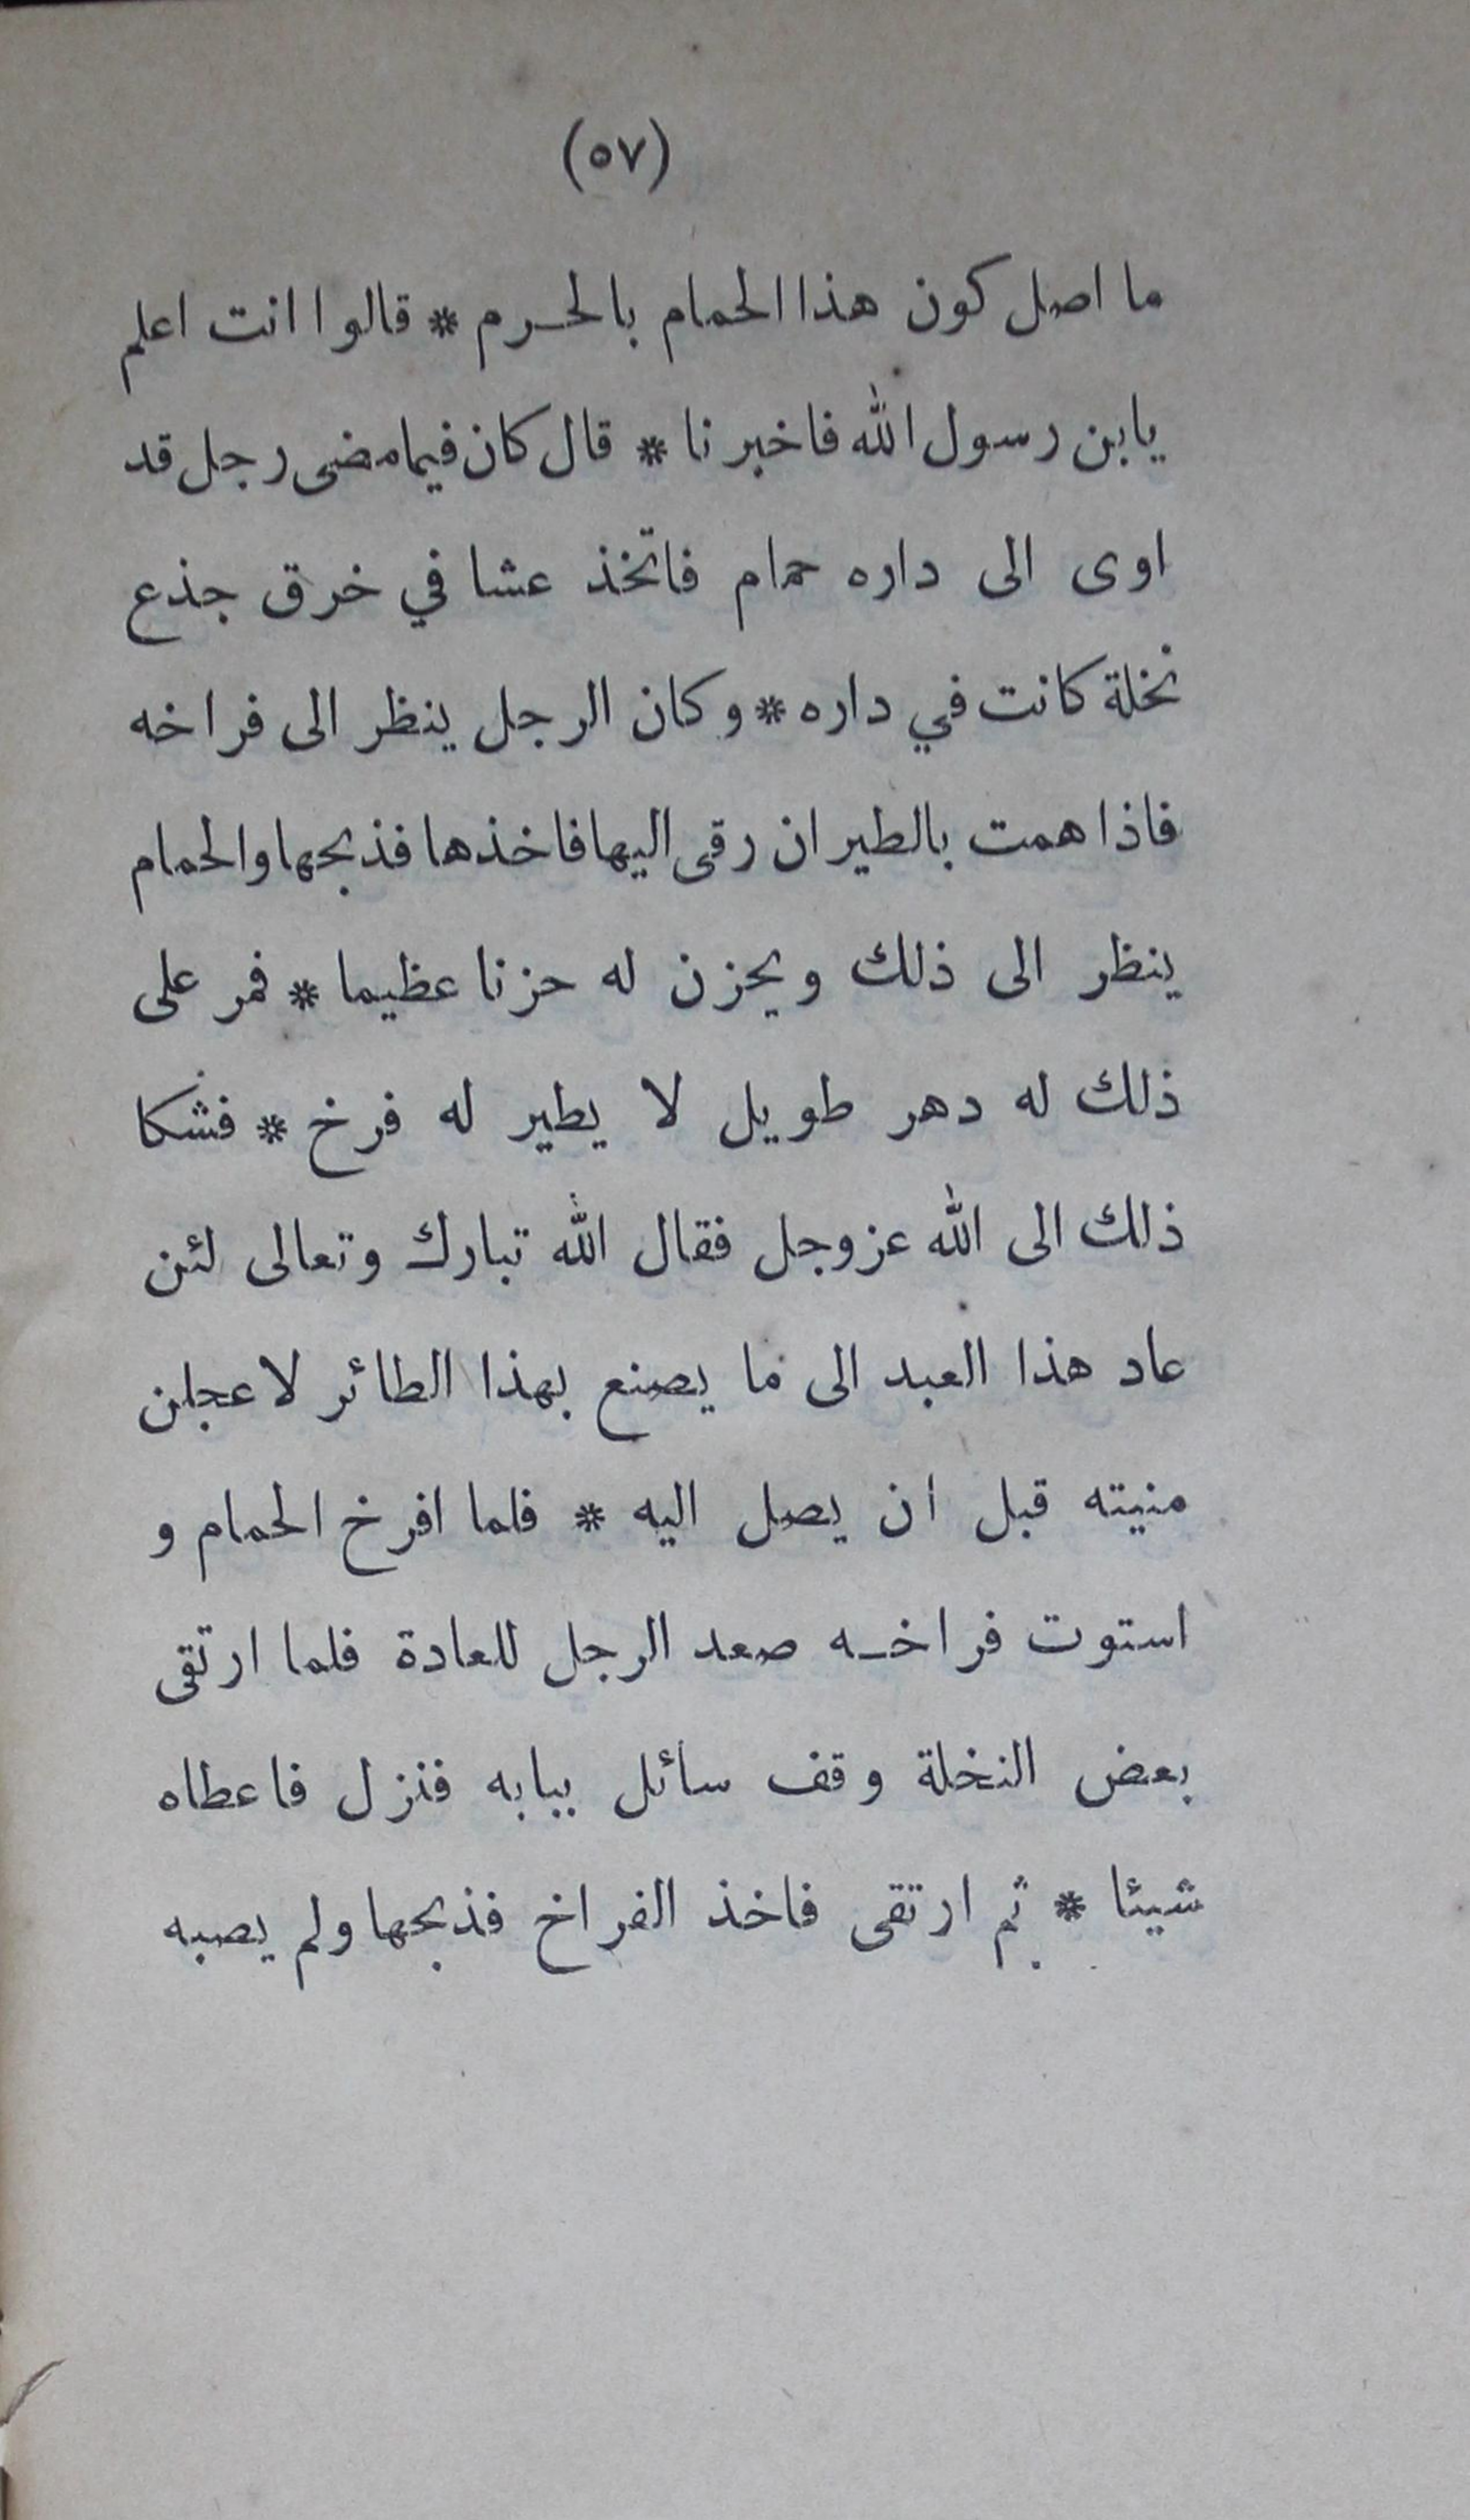 (٥٧)
ما اصل كون هذا الحمام بالحرم * قالوا انت اعلم
يابن رسول الله فاخبرنا * قال كان فيما مضى رجل قد
اوى الى داره حمام فاتخذ عشا في خرق جذع
نخلة كانت في داره * وكان الرجل ينظر الى فراخه
فاذا همت بالطيران رقى اليها فاخذها فذبحها والحمام
ينظر الى ذلك ويحزن له حزنا عظيما * فمر على
ذلك له دهر طويل لا يطير له فرخ * فشكا
ذلك الى الله عز وجل فقال الله تبارك وتعالى لئن
عاد هذا العبد الى ما يصنع بهذا الطائر لاعجلن
منيته قبل ان يصل اليه * فلما افرخ الحمام و
استوت فراخـه صعد الرجل للعادة فلما ارتقى
بعض النخلة وقف سائل ببابه فنزل فاعطاه
شيئا * ثم ارتقى فاخذ الفراخ فذبحها ولم يصبه